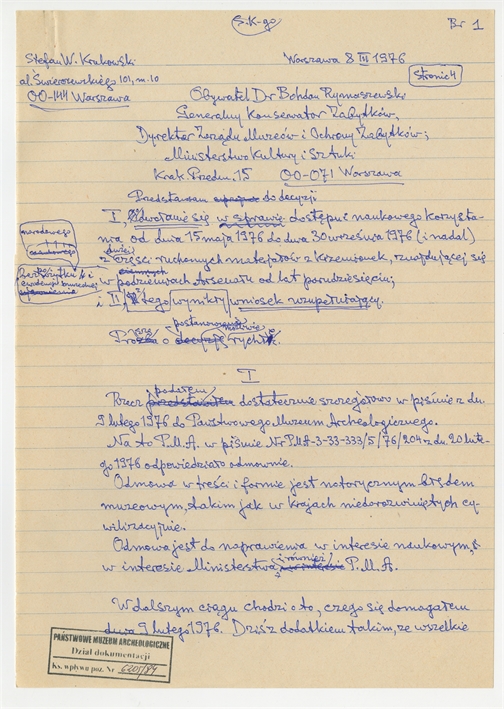 S.K-go
Nr 1
Stefan W. Krukowski
al. Świerczewskiego 101, m. 10
00-144 Warszawa
Warszawa 8 III 1976
Stronic 4
Obywatel Dr Bohdan Rymaszewski
Generalny Konserwator Zabytków,
Dyrektor Zarządu Muzeów i Ochrony Zabytków;
Ministerstwo Kultury i Sztuki
Krak. Przedm. 15 00-071 Warszawa
Przedstawiam do decyzji
I, Odwołanie się w sprawie dostępu i naukowego korzysta-
nia od dnia 15 maja 1976 do dnia 30 września 1976 (i nadal)
z części ruchomych materjałów z Krzemionek, znajdującej się
w podziemiach Arsenału od lat parudziesięciu;
i II, z tego wynikły wniosek uzupełniający.
narodowego
naukowego
postanowienie
Proszę o rychłe.
I
podałem
Rzecz dostatecznie szczegółowo w piśmie z dn.
9 lutego 1976 do Państwowego Muzeum Archeologicznego.
Na to P.M.A. w piśmie Nr PMA-3-33-333/5/76/204 z dn. 20 lute-
go 1976 odpowiedziało odmownie.
Odmowa w treści i formie jest notorycznym błędem
muzeowym, takim jak w krajach niedorozwiniętych cy-
wilizacyjnie.
Odmowa jest do naprawienia w interesie naukowym,
w interesie Ministerstwa, również P.M.A.
W dalszym ciągu chodzi o to, czego się domagałem
dnia 9 lutego 1976. Dziś z dodatkiem takim, że wszelkie
PAŃSTWOWE MUZEUM ARCHEOLOGICZNE
Dział dokumentacji
Ks. wpływu poz. Nr 6205/84